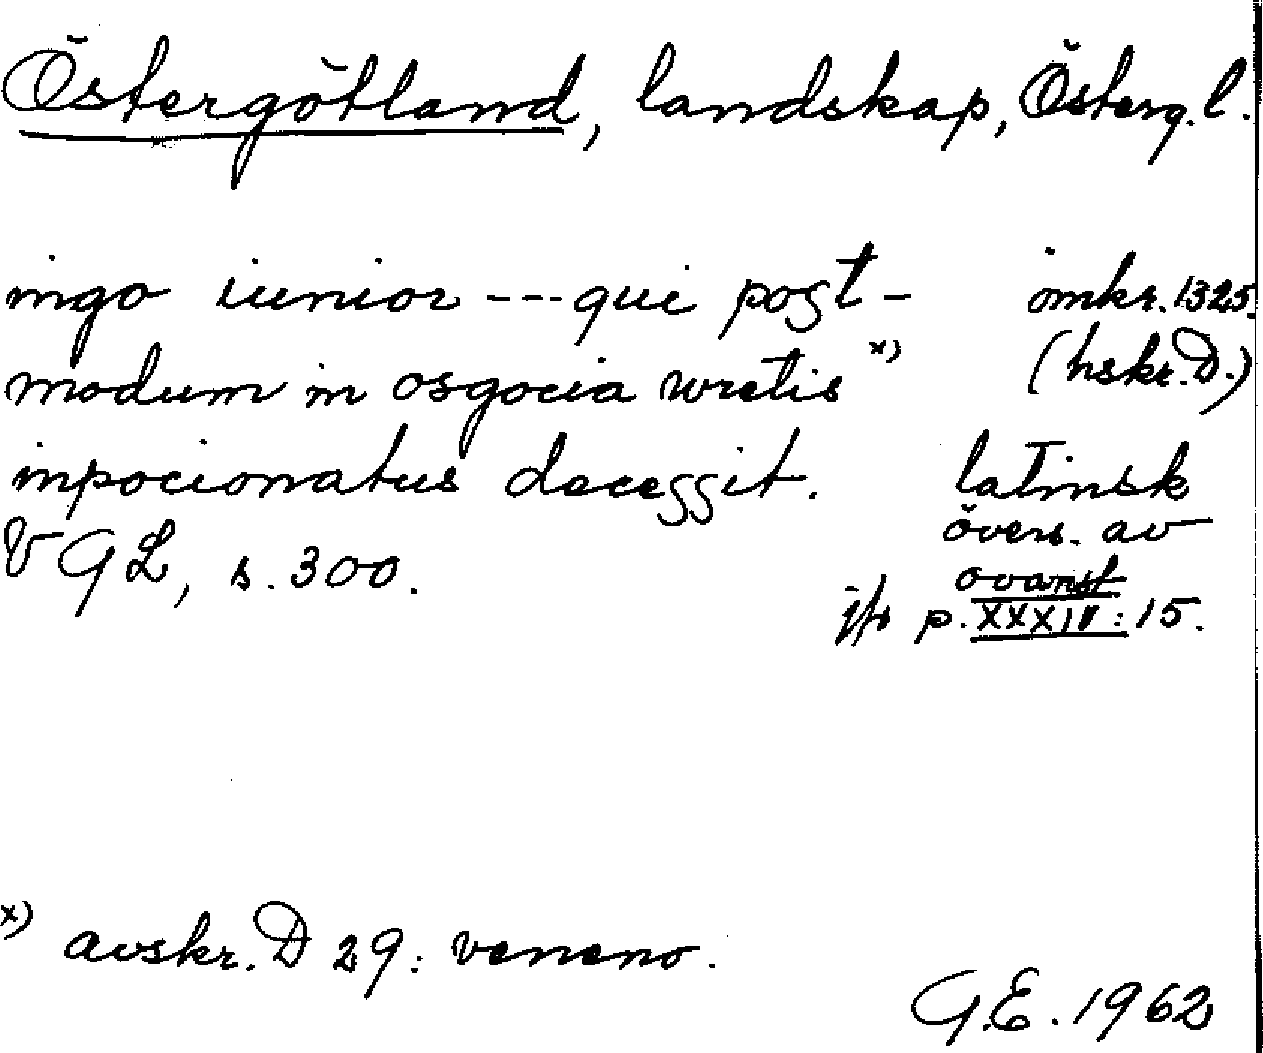 Östergötland, landskap, Österg. l.
ingo iunior --- qui post-
omkr. 1325.
modum in osgocia wretis x)
(hskr. D.)
inpocionatus decessit.
latinsk
VGL, s. 300.
övers. av
ovanst
jfr p. XXXIV: 15.
x) avskr. D 29: veneno.
G.E. 1962